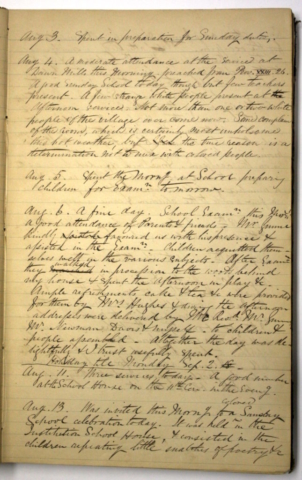 Aug 3. Spent in preparation for Sunday duty,
Aug 4. A moderate attendance at the services at
Mills this Morning, preached from
A good Sunday School to day tho' but few teachers
present. A few more people present at the
Afternoon services. Not more than one or two white
people of the village ever comes now. Some complain
of the road, which is certainly most
this hot weather, but the true reason is a
determination not to mix with colored people.
Aug 5. Spent the Morng at School preparing
Children for Examn to morrow.
Aug. 6. A fine day. School Examn this
a good attendance of Parents & friends. Mr
family favored us with his presence &
assisted in the Examn. Children acquitted them
selves well in the various subjects. After Examn
they in procession to the wood behind
my house & spent the afternoon in play &c
Ample refreshments cake & tea &c were provided
for them by Mrs Hughes & during the afternoon
addresses were delivered by
Newman Davis & myself to children &
people assembled. Altogether the day was de-
lightfully & I trust usefully spent.
the Monday Sep. 2.
Aug. 11. Three services today. A good number
at School House on the in the Eveng.
Aug. 13. Was invited this Morng to a Sunday
School celebration today. It was held in the
Institution School House, & consisted in the
children repeating little snatches of poetry &c